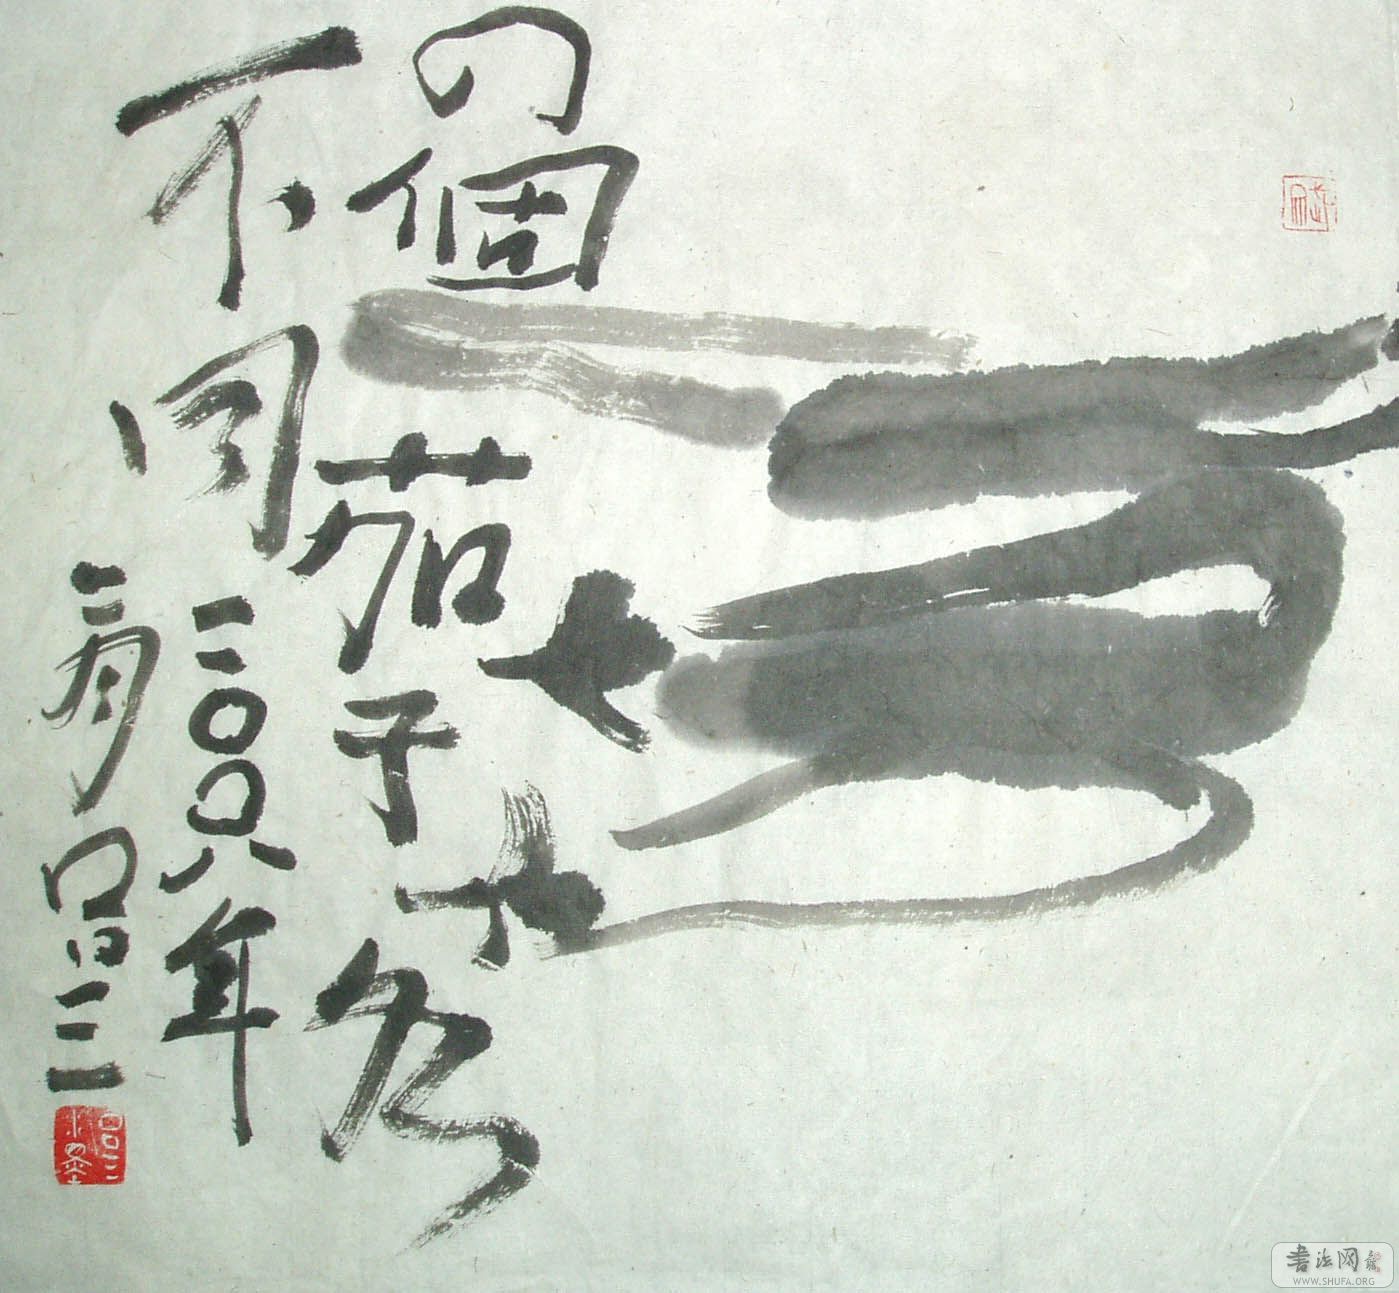 四個茄子各
不同二〇〇八年
吕三
書法网
WWW.SHUFA.ORG